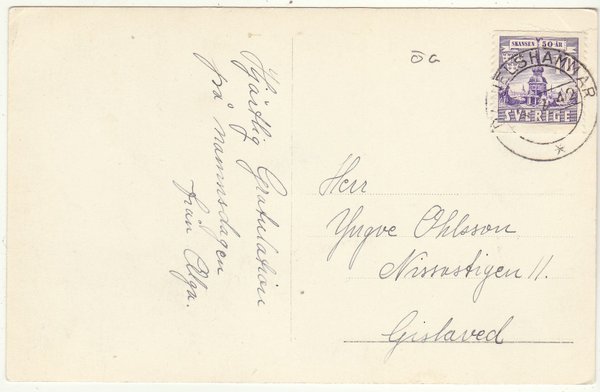 Hjärtlig Gratulation
på namnsdagen
från Olga.
ÖG
SKANSEN 50 ÅR
SVERIGE
ELSHAMMAR
Herr
Yngve Ohlsson
Nissastigen 11.
Gislaved